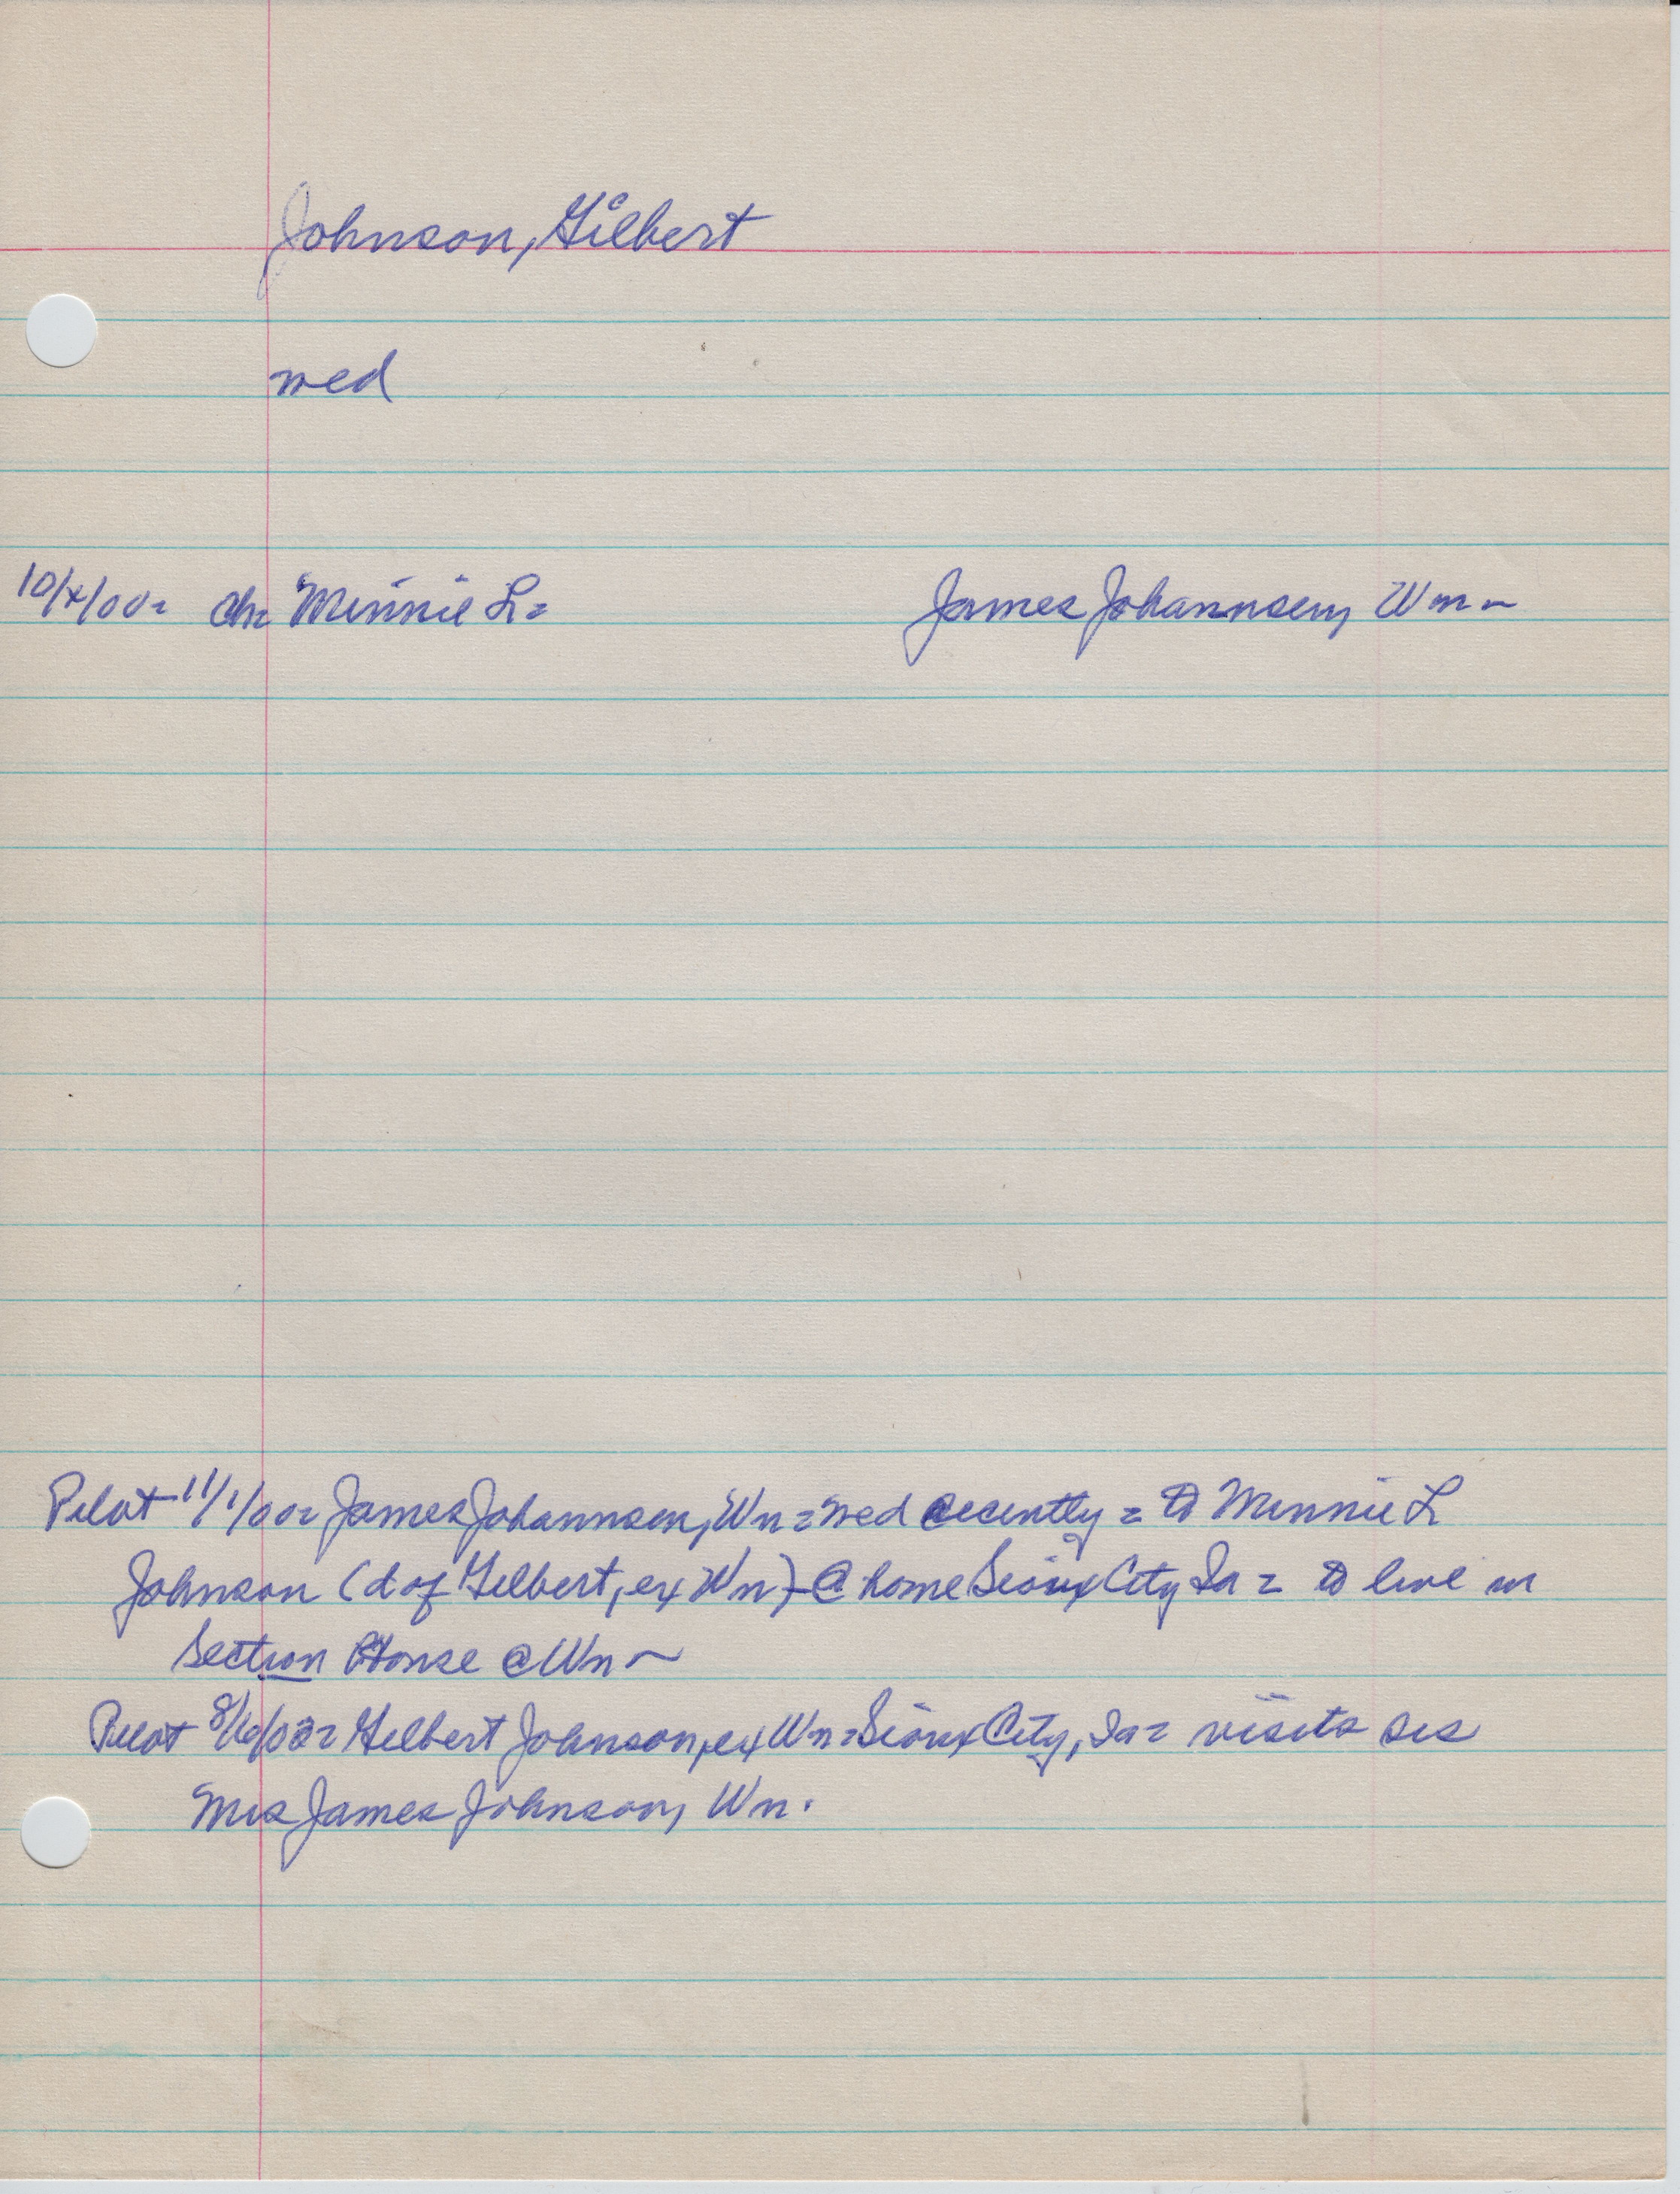 Johnson, Gilbert
med
10/x/00= ch= Minnie L=   James Johannsen, Wn~
Pilot 11/1/00= James Johannsen, Wn = med recently = to Minnie L
Johnson (d of Gilbert, ex Wn) - @ home Sioux City Ia = to live in
Section House @ Wn~
Pilot Gilbert Johnson, ex Wn = Sioux City, Ia = visits sis
Mrs James Johnson, Wn.